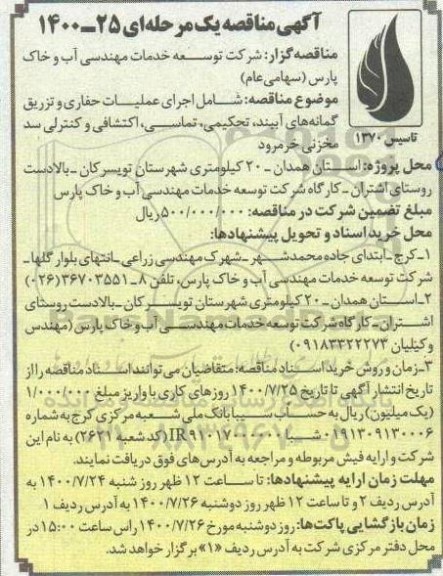 آگهی مناقصه یک مرحله‌ای ۲۵-۱۴۰۰
مناقصه‌گزار: شرکت توسعه خدمات مهندسی آب و خاک
پارس (سهامی عام)
موضوع مناقصه: شامل اجرای عملیات حفاری و تزریق
گمانه‌های آببند، تحکیمی، تماسی، اکتشافی و کنترلی سد
مخزنی خرمرود
تاسیس ۱۳۷۰
محل پروژه: استان همدان - ۲۰ کیلومتری شهرستان تویسرکان - بالادست
روستای اشتران - کارگاه شرکت توسعه خدمات مهندسی آب و خاک پارس
مبلغ تضمین شرکت در مناقصه: ۵۰۰/۰۰۰/۰۰۰ ریال
محل خرید اسناد و تحویل پیشنهادها:
۱- کرج - ابتدای جاده محمدشهر - شهرک مهندسی زراعی - انتهای بلوار گلها -
شرکت توسعه خدمات مهندسی آب و خاک پارس، تلفن ۸ - ۳۶۷۰۳۵۵۱ (۰۲۶)
۲- استان همدان - ۲۰ کیلومتری شهرستان تویسرکان - بالادست روستای
اشتران - کارگاه شرکت توسعه خدمات مهندسی آب و خاک پارس (مهندس
وکیلیان ۰۹۱۸۳۳۲۲۲۷۳)
۳- زمان و روش خرید اسناد مناقصه: متقاضیان می‌توانند اسناد مناقصه را از
تاریخ انتشار آگهی تا تاریخ ۱۴۰۰/۷/۲۵ روزهای کاری با واریز مبلغ ۱/۰۰۰/۰۰۰
(یک میلیون) ریال به حساب سیبا بانک ملی شعبه مرکزی کرج به شماره
(کد شعبه ۲۶۳۱) به نام این
شرکت و ارایه فیش مربوطه و مراجعه به آدرس‌های فوق دریافت نمایند.
مهلت زمان ارایه پیشنهادها: تا ساعت ۱۲ ظهر روز شنبه ۱۴۰۰/۷/۲۴ به
آدرس ردیف ۲ و تا ساعت ۱۲ ظهر روز دوشنبه ۱۴۰۰/۷/۲۶ به آدرس ردیف ۱
زمان بازگشایی پاکت‌ها: روز دوشنبه مورخ ۱۴۰۰/۷/۲۶ راس ساعت ۱۵:۰۰ در
محل دفتر مرکزی شرکت به آدرس ردیف «۱» برگزار خواهد شد.